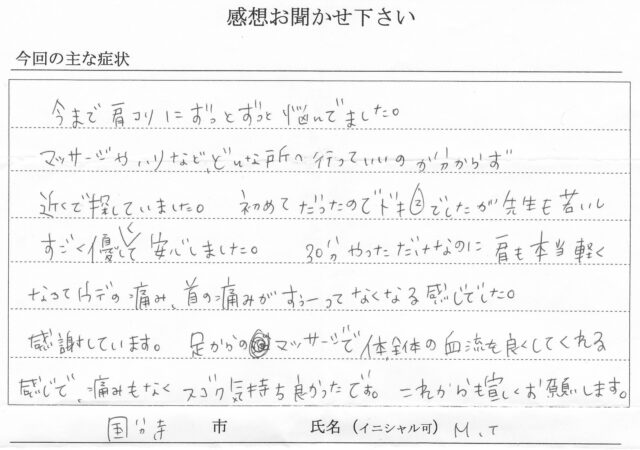 感想お聞かせ下さい
今回の主な症状
今まで肩コリにずっとずっと悩んでました。
マッサージやハリなど、どんな所へ行っていいのか分からず
近くで探していました。 初めてだったのでドキ②でしたが先生も若いし
すごく優しくて安心しました。 30分やっただけなのに肩も本当軽く
なってウデの痛み、首の痛みがすぅーってなくなる感じでした。
感謝しています。 足からのマッサージで体全体の血流も良くしてくれる
感じで、痛みもなくスゴク気持ち良かったです。これからも宜しくお願いします。
国分寺 市 氏名（イニシャル可） M.T